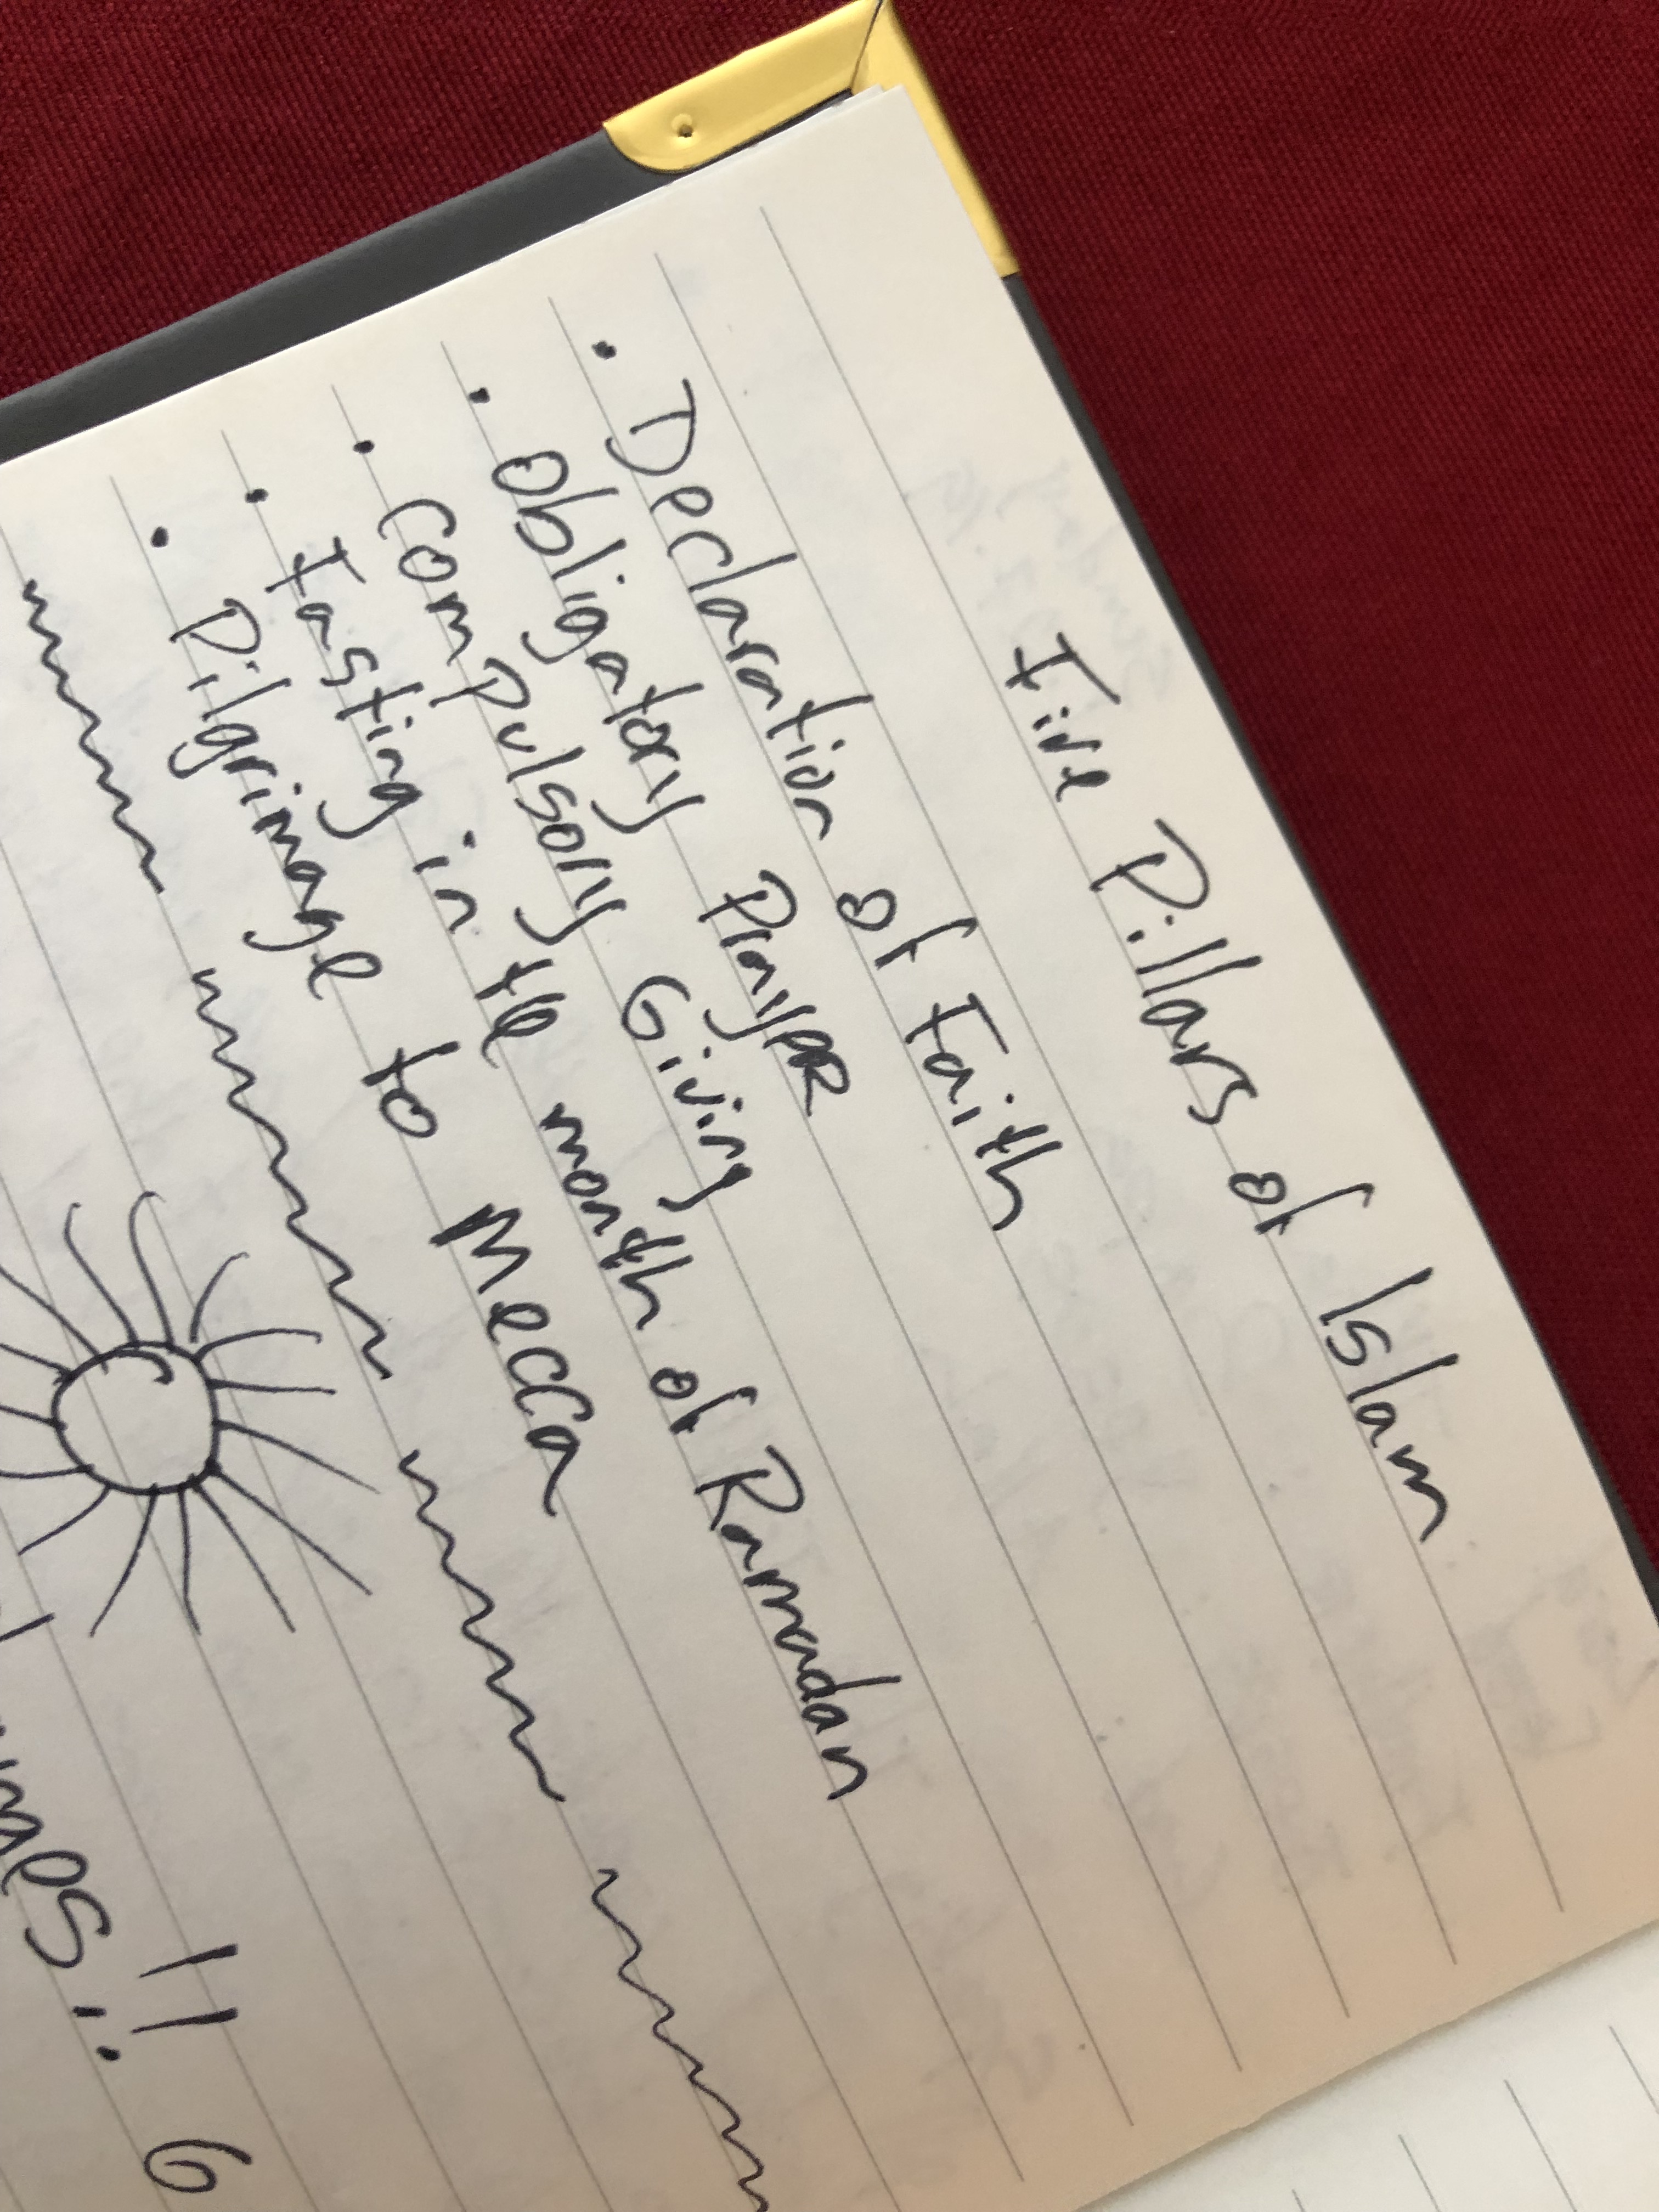 Five Pillars of Islam
• Declaration of Faith
• Obligatory Prayer
• Compulsory Giving
• Fasting in the month of Ramadan
• Pilgrimage to Mecca
!! 6